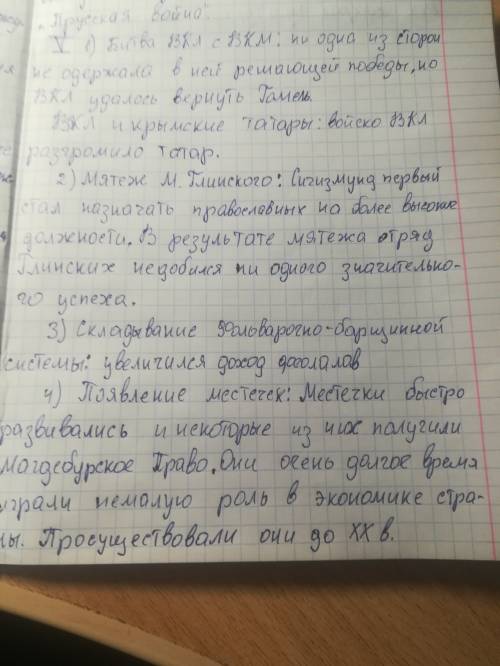 „Прусская война“.
V 1) Битва ВКЛ с ВКМ: ни одна из сторон
не одержала в ней решающей победы, но
ВКЛ удалось вернуть Гомель.
ВКЛ и крымские татары: войско ВКЛ
разгромило татар.
2) Мятеж М. Глинского: Сигизмунд первый
стал назначать православных на более высокие
должности. В результате мятежа отряд
Глинских недобился ни одного значительно-
го успеха.
3) Складывание Фольварочно-барщинной
системы: увеличился доход
4) Появление местечек: Местечки быстро
развивались и некоторые из них получили
Магдебурское Право. Они очень долгое время
играли немалую роль в экономике стра-
ны. Просуществовали они до XX в.